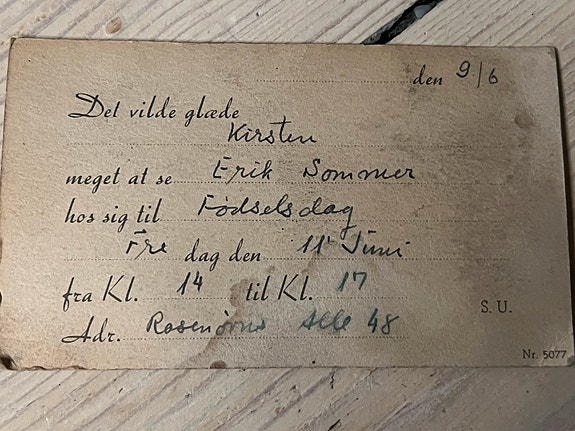 den 9/6
Det vilde glæde
Kirsten
meget at se Erik Sommer
hos sig til Fødselsdag
Fre dag den 11' Juni
fra Kl. 14 til Kl. 17
S. U.
Adr. Rosenørns Alle 48
Nr. 5077